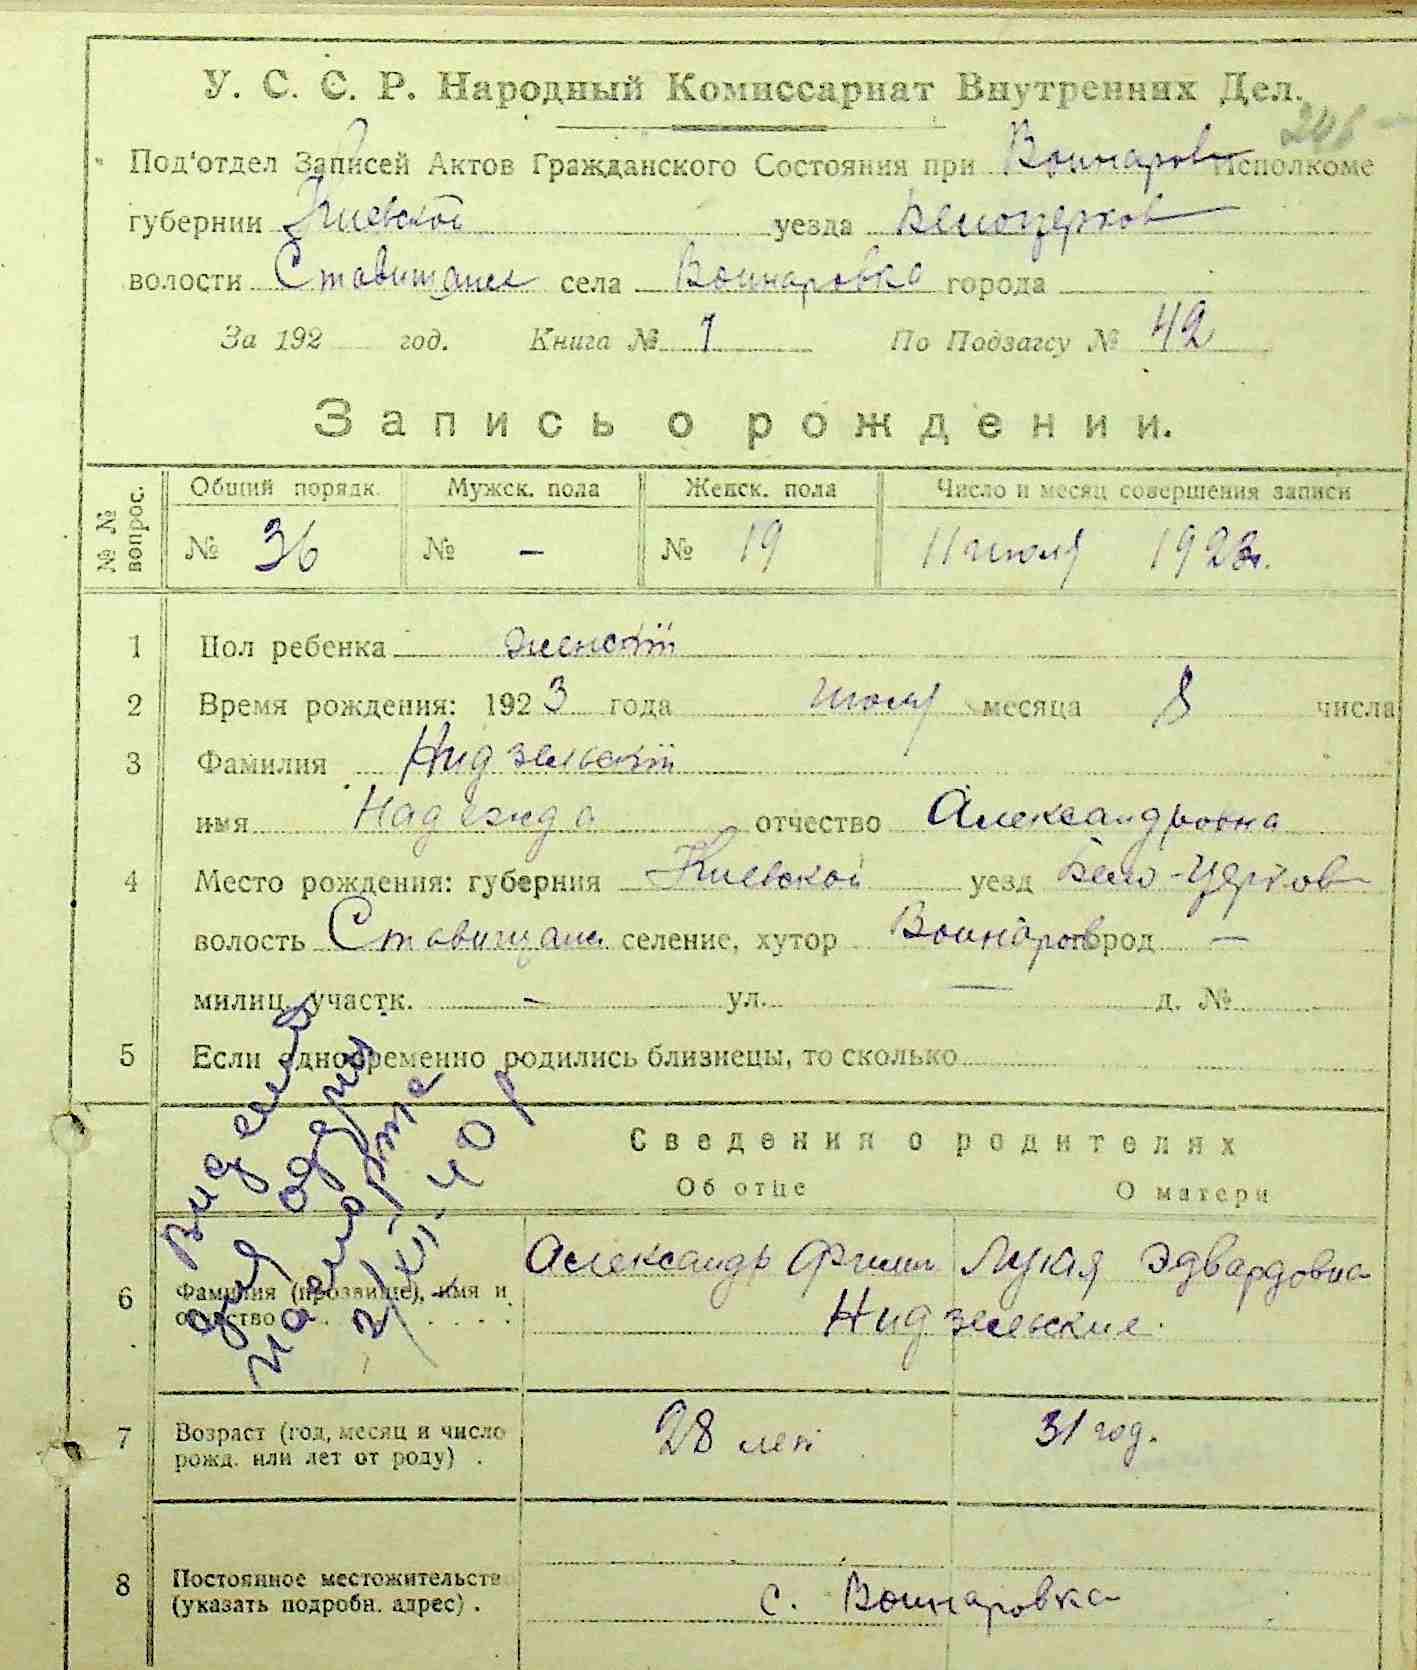 У. С. С. Р. Народный Комиссариат Внутренних Дел.
246
Под'отдел Записей Актов Гражданского Состояния при Воинаров Исполкоме
губернии Киевской уезда Белоцерков
волости Ставищанс села Воинаровка города
За 192 год. Книга № 1 По Подзагсу № 42
Запись о рождении.
№ № вопрос. Общий порядк. Мужск. пола Женск. пола Число и месяц совершения записи
№ 36 № - № 19 11 июля 1923г.
1 Пол ребенка женскій
2 Время рождения: 1923 года июля месяца 8 числа
3 Фамилия Нидзельскій
имя Надежда отчество Александровна
4 Место рождения: губерния Киевской уезд Бело-Церков
волость Ставищанс селение, хутор Воинаров город —
милиц. участк. - ул. — д. №
5 Если одновременно родились близнецы, то сколько
Сведения о родителях
Об отце О матери
6 Фамилия (прозвище), имя и отчество Александр Филип Лукия Эдвардовна
Нидзельские.
7 Возраст (год, месяц и число рожд. или лет от роду) . 28 лет 31 год.
8 Постоянное местожительство (указать подробн. адрес) . с. Воинаровка
для
паспорта
2/XII-40 р